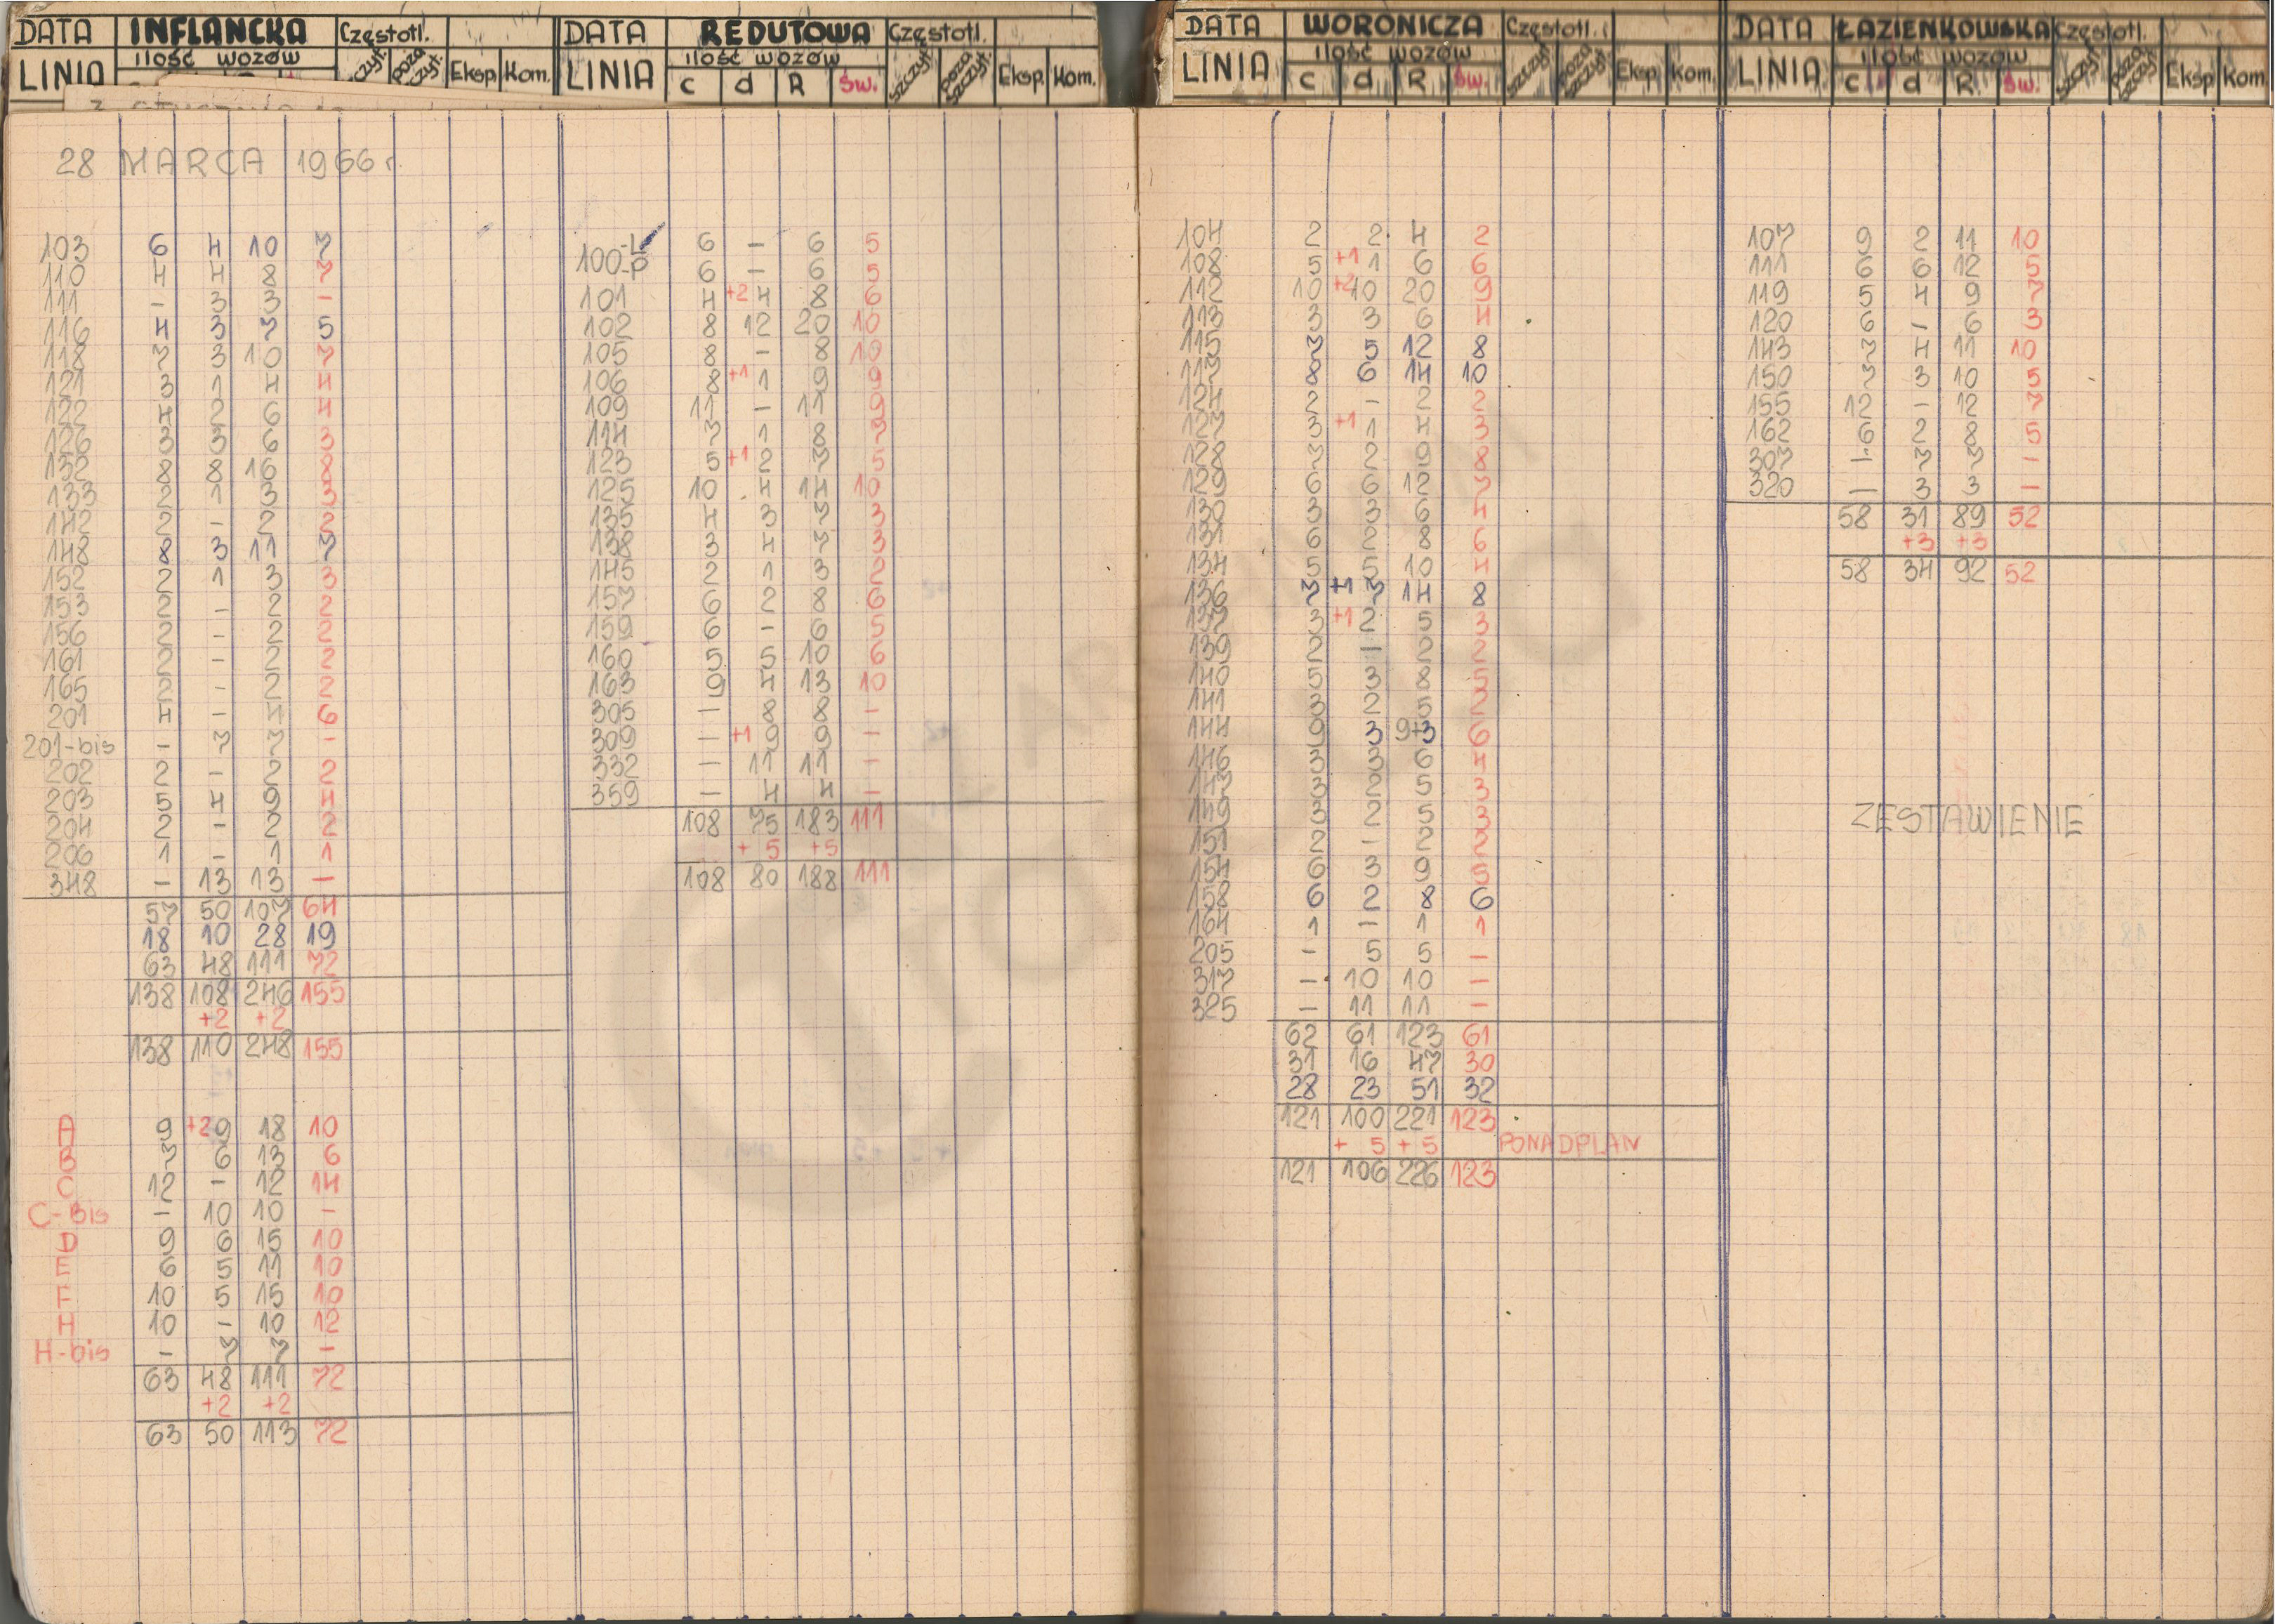 DATA INFLANCKA Częstotl.
LINIA ilość wozów szczyt. poza szczyt. Eksp. Kom.
28 MARCA 1966 r.
103 6 4 10 7
110 4 4 8 7
111 – 3 3 –
116 4 3 7 5
118 7 3 10 7
121 3 1 4 4
122 4 2 6 4
126 3 3 6 3
132 8 8 16 8
133 2 1 3 3
142 2 – 2 2
148 8 3 11 7
152 2 1 3 3
153 2 – 2 2
156 2 – 2 2
161 2 – 2 2
165 2 – 2 2
201 4 – 4 6
201-bis – 7 7 –
202 2 – 2 2
203 5 4 9 4
204 2 – 2 2
206 1 – 1 1
348 – 13 13 –
57 50 107 64
18 10 28 19
63 48 111 72
138 108 246 155
+2 +2
138 110 248 155
A 9 +2 9 18 10
B 7 6 13 6
C 12 – 12 14
C-Bis – 10 10 –
D 9 6 15 10
E 6 5 11 10
F 10 5 15 10
H 10 – 10 12
H-bis – 7 7 –
63 48 111 72
+2 +2
63 50 113 72
DATA REDUTOWA Częstotl.
LINIA ilość wozów c d R Św. szczyt poza szczyt. Eksp. Kom.
100-L 6 – 6 5
100-P 6 – 6 5
101 4 +2 4 8 6
102 8 12 20 10
105 8 – 8 10
106 8 +1 1 9 9
109 11 – 11 9
114 7 1 8 7
123 5 +1 2 7 5
125 10 4 14 10
135 4 3 7 3
138 3 4 7 3
145 2 1 3 2
157 6 2 8 6
159 6 – 6 5
160 5 5 10 6
163 9 4 13 10
305 – 8 8 –
309 – +1 9 9 –
332 – 11 11 –
359 – 4 4 –
108 75 183 111
+ 5 +5
108 80 188 111
DATA WORONICZA Częstotl.
LINIA ilość wozów c d R Św. szczyt poza szczyt Eksp. Kom.
104 2 2 4 2
108 5 +1 1 6 6
112 10 +2 10 20 9
113 3 3 6 4
115 7 5 12 8
117 8 6 14 10
124 2 – 2 2
127 3 +1 1 4 3
128 7 2 9 8
129 6 6 12 7
130 3 3 6 4
131 6 2 8 6
134 5 5 10 4
136 7 +1 7 14 8
137 3 +1 2 5 3
139 2 – 2 2
140 5 3 8 5
141 3 2 5 2
144 9 3 9+3 6
146 3 3 6 4
147 3 2 5 3
149 3 2 5 3
151 2 – 2 2
154 6 3 9 5
158 6 2 8 6
164 1 – 1 1
205 – 5 5 –
317 – 10 10 –
325 – 11 11 –
62 61 123 61
31 16 47 30
28 23 51 32
121 100 221 123
+ 5 + 5 PONADPLAN
121 106 226 123
DATA ŁAZIENKOWSKA Częstotl.
LINIA ilość wozów c d R Św. szczyt poza szczyt Eksp Kom
107 9 2 11 10
111 6 6 12 5
119 5 4 9 7
120 6 – 6 3
143 7 4 11 10
150 7 3 10 5
155 12 – 12 7
162 6 2 8 5
307 – 7 7 –
320 – 3 3 –
58 31 89 52
+3 +3
58 34 92 52
ZESTAWIENIE